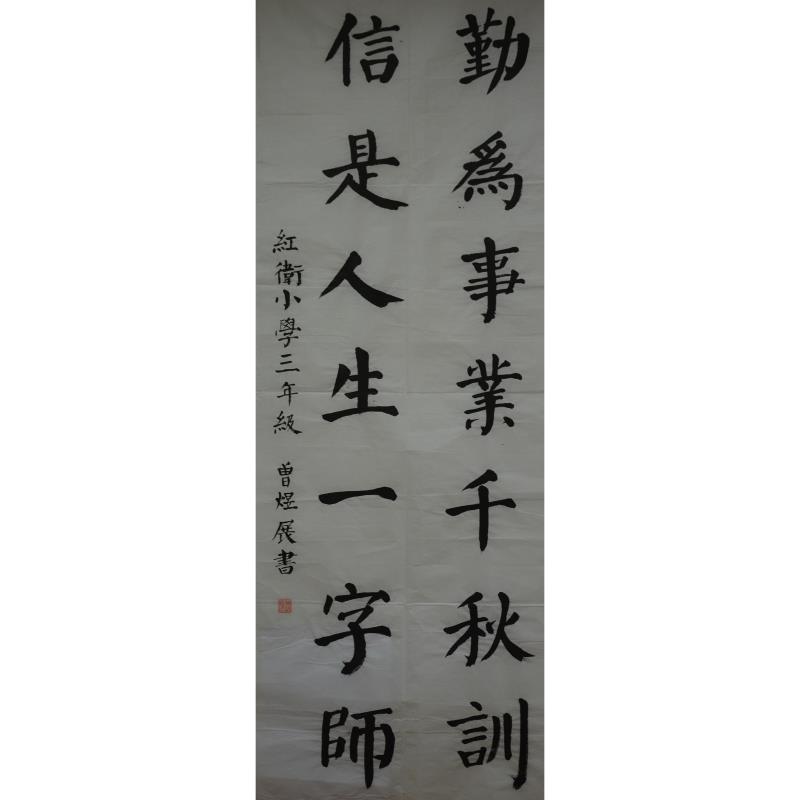 勤為事業千秋訓
信是人生一字師
紅衛小學三年級 曾煜展書